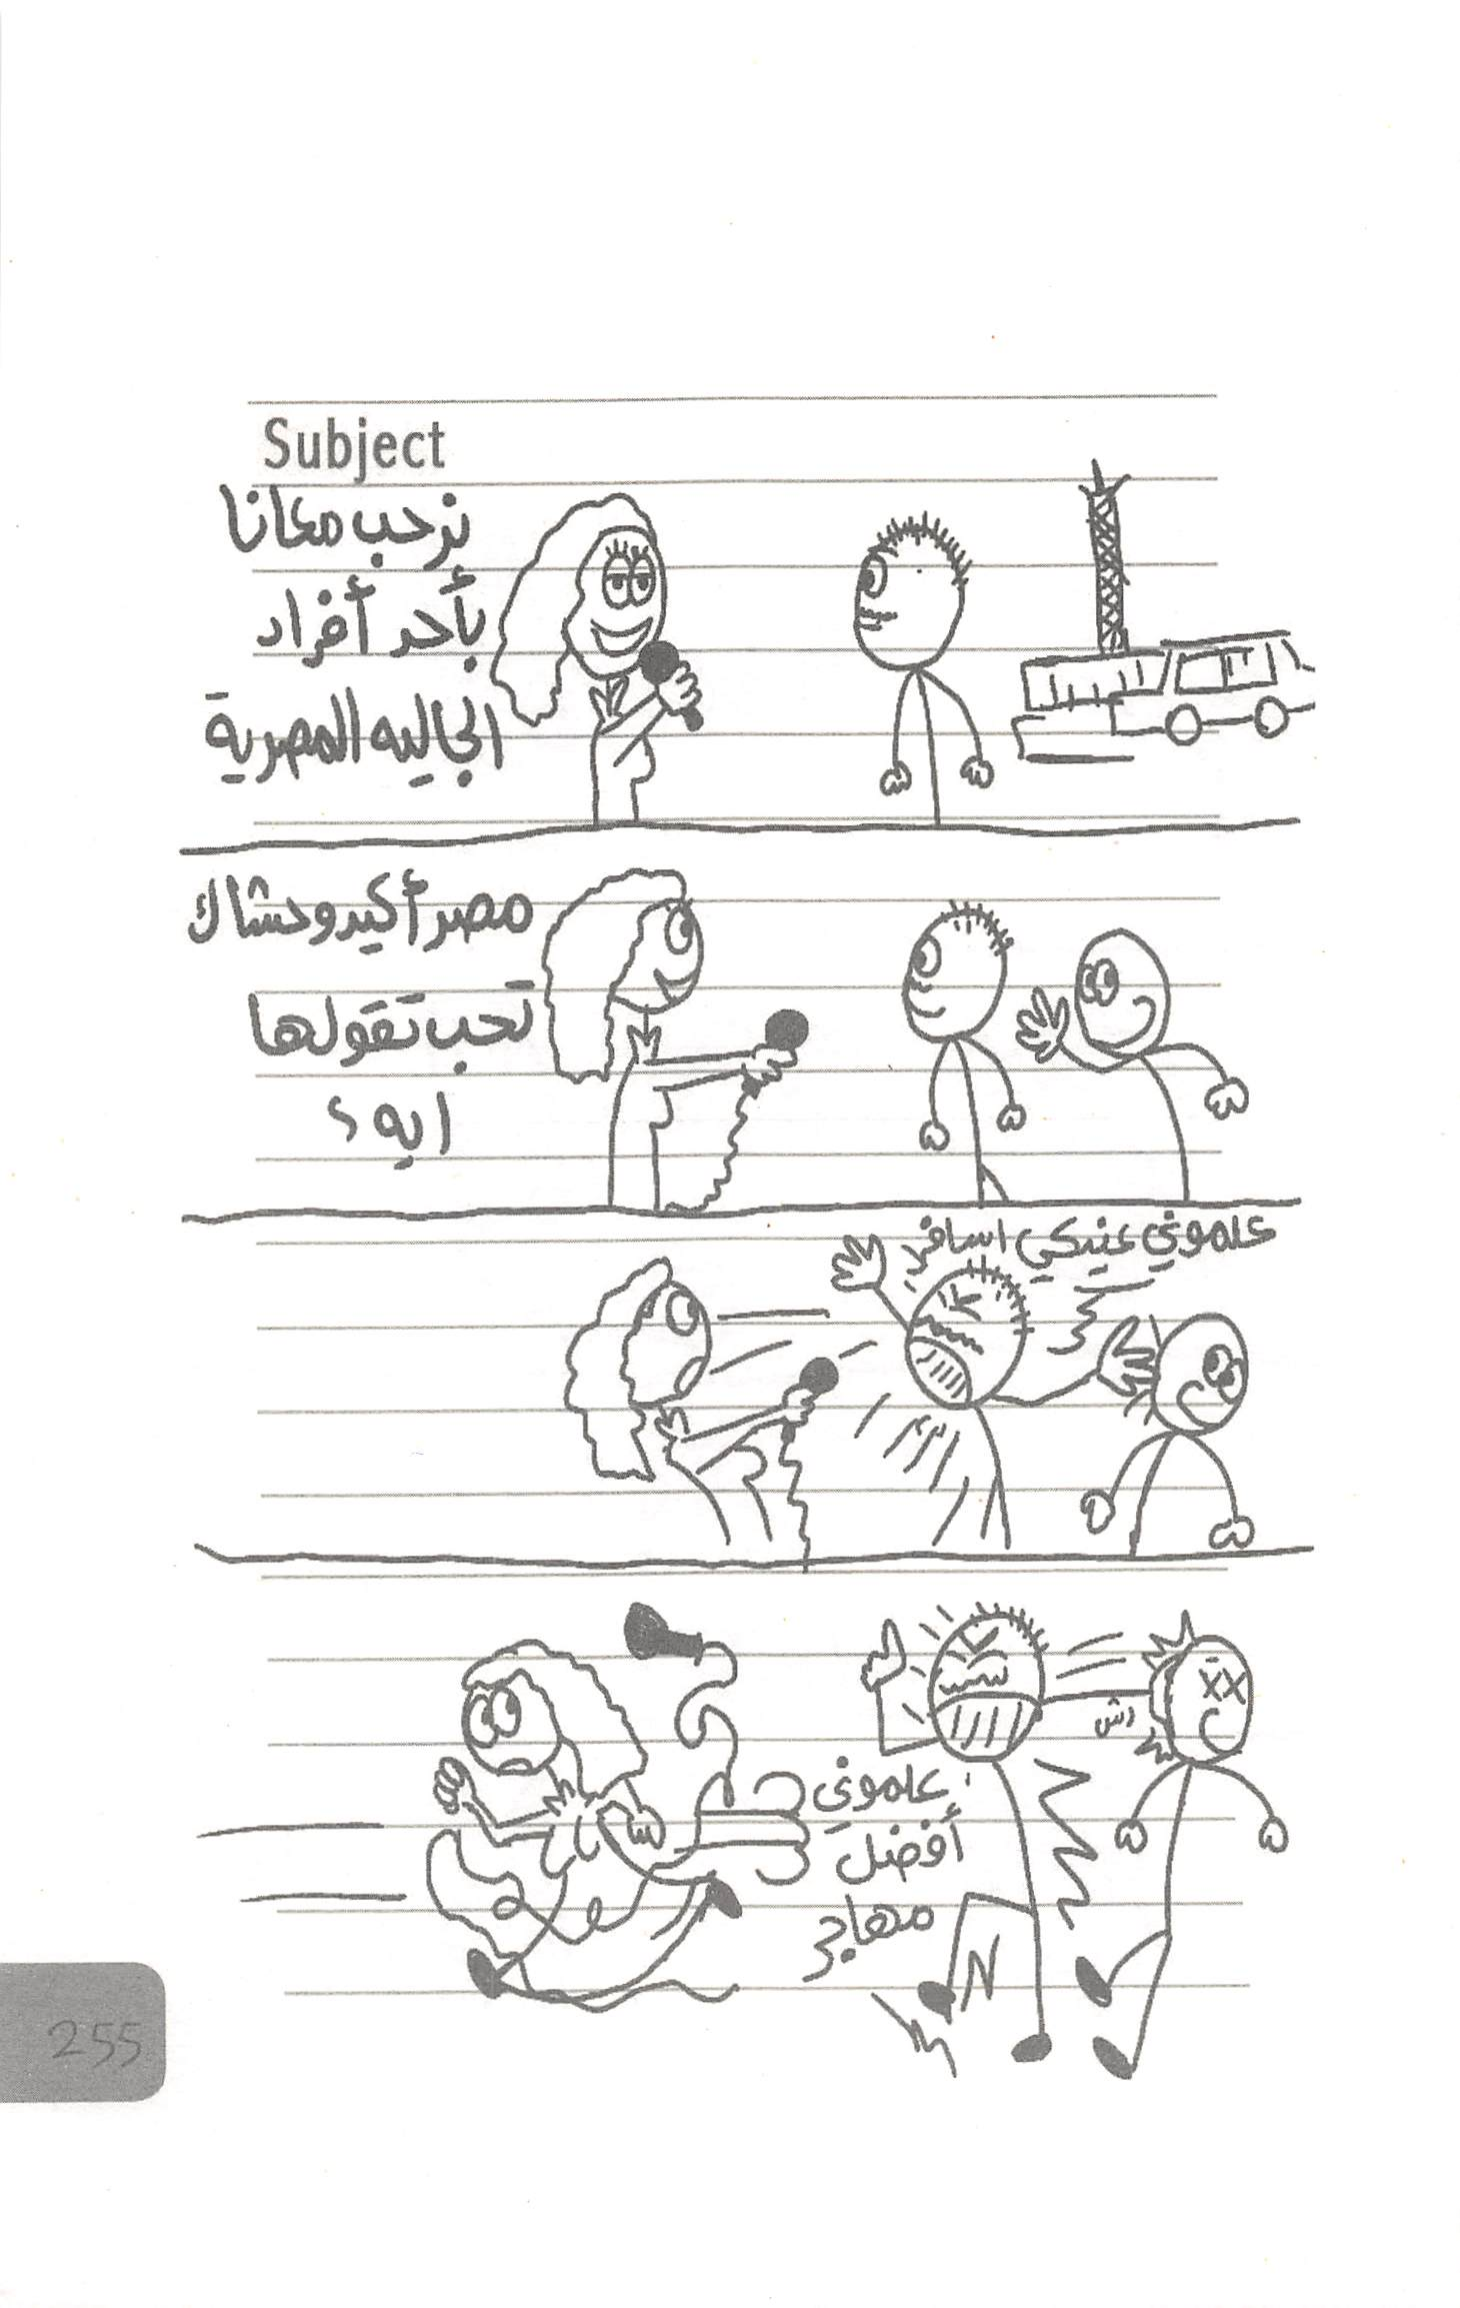 Subject
نرحب معانا
بأحد أفراد
الجاليه المصرية
مصر أكيد وحشاك
تحب تقولها
ايه ؟
علموني عنيكي اسافر
رش
علموني
أفضل
مهاجر
255